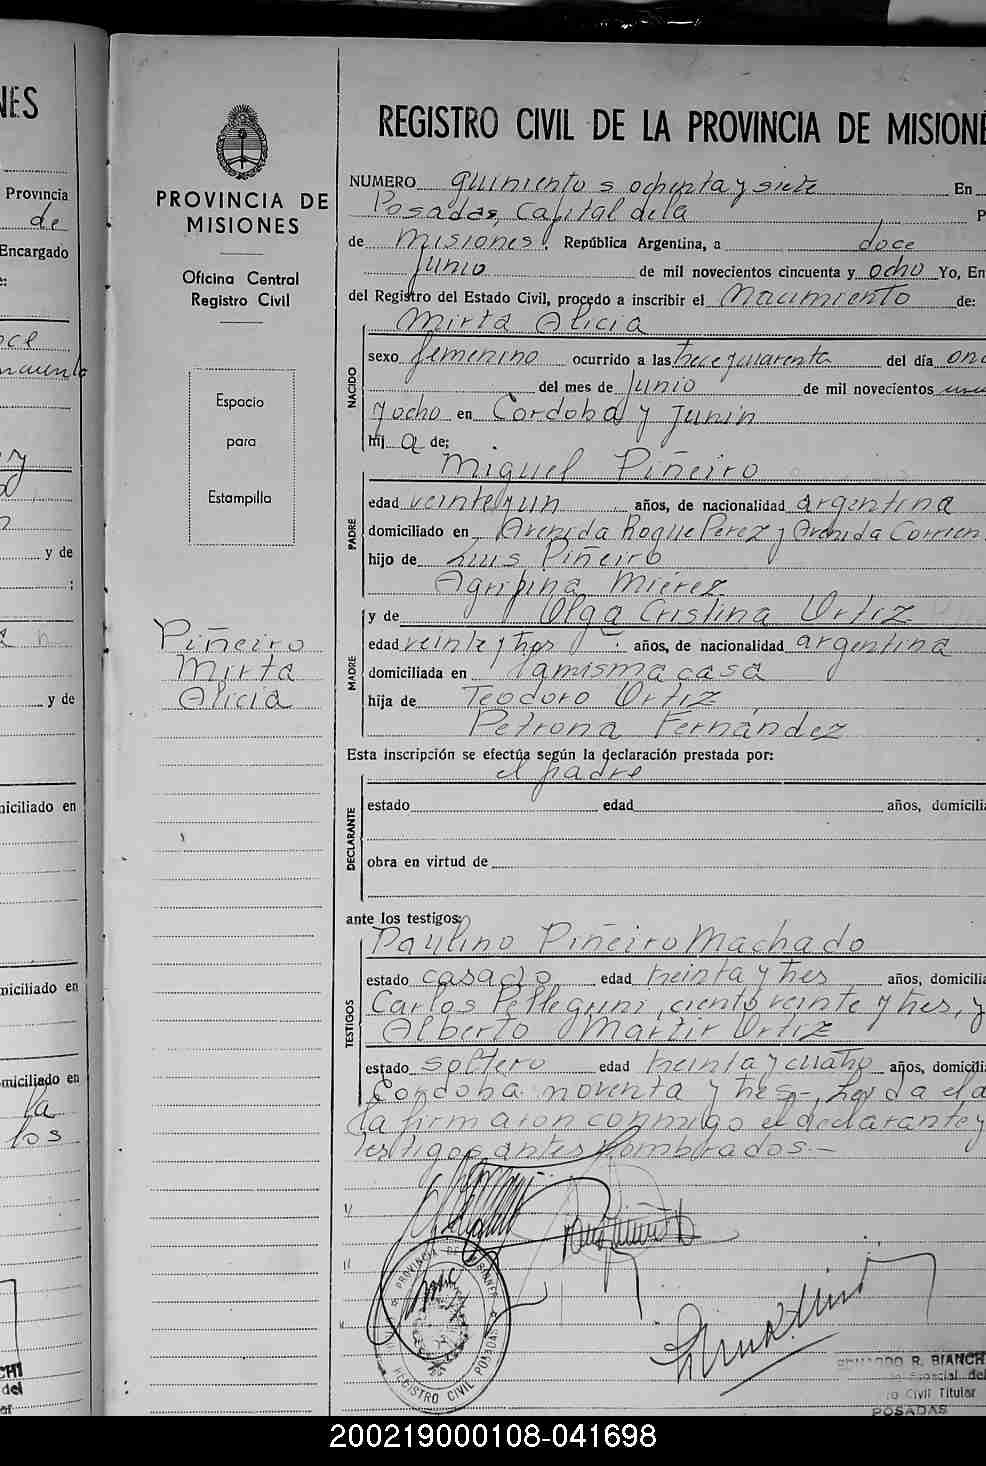 NES
Provincia
de
Encargado
y de
y de
miciliado en
miciliado en
miciliado en
la
los
CHI
del
PROVINCIA DE
MISIONES
Oficina Central
Registro Civil
Espacio
para
Estampilla
Piñeiro
Mirta
Alicia
REGISTRO CIVIL DE LA PROVINCIA DE MISIONE
NUMERO quinientos ochenta y siete En
Posadas, Capital de la P
de Misiones, República Argentina, a doce
junio de mil novecientos cincuenta y ocho Yo, En
del Registro del Estado Civil, procedo a inscribir el Nacimiento de:
Mirta Alicia
NACIDO
sexo femenino ocurrido a las trece y cuarenta del día onc
del mes de Junio de mil novecientos
y ocho en Córdoba y Junín
hij a de:
Miguel Piñeiro
PADRE
edad veinteyun años, de nacionalidad argentina
domiciliado en Avenida Roque Perez y Avenida Corrien
hijo de Luis Piñeiro
Agripina Miérez
y de Olga Cristina Ortiz
MADRE
edad veinte y tres años, de nacionalidad argentina
domiciliada en la misma casa
hija de Teodoro Ortiz
Petrona Fernández
Esta inscripción se efectúa según la declaración prestada por:
el padre
DECLARANTE
estado edad años, domicilia
obra en virtud de
ante los testigos:
Paulino Piñeiro Machado
TESTIGOS
estado casado edad treinta y tres años, domicilia
Carlos Pellegrini, ciento veinte y tres, y
Alberto Martir Ortiz
estado soltero edad treinta y cuatro años, domicilia
Córdoba noventa y tres.- Leída el a
ta firmaron conmigo el declarante y
testigos antes nombrados.-
PROVINCIA DE MISIONES
REGISTRO CIVIL POSADAS
EDUARDO R. BIANCH
Especial del
Civil Titular
POSADAS
200219000108-041698